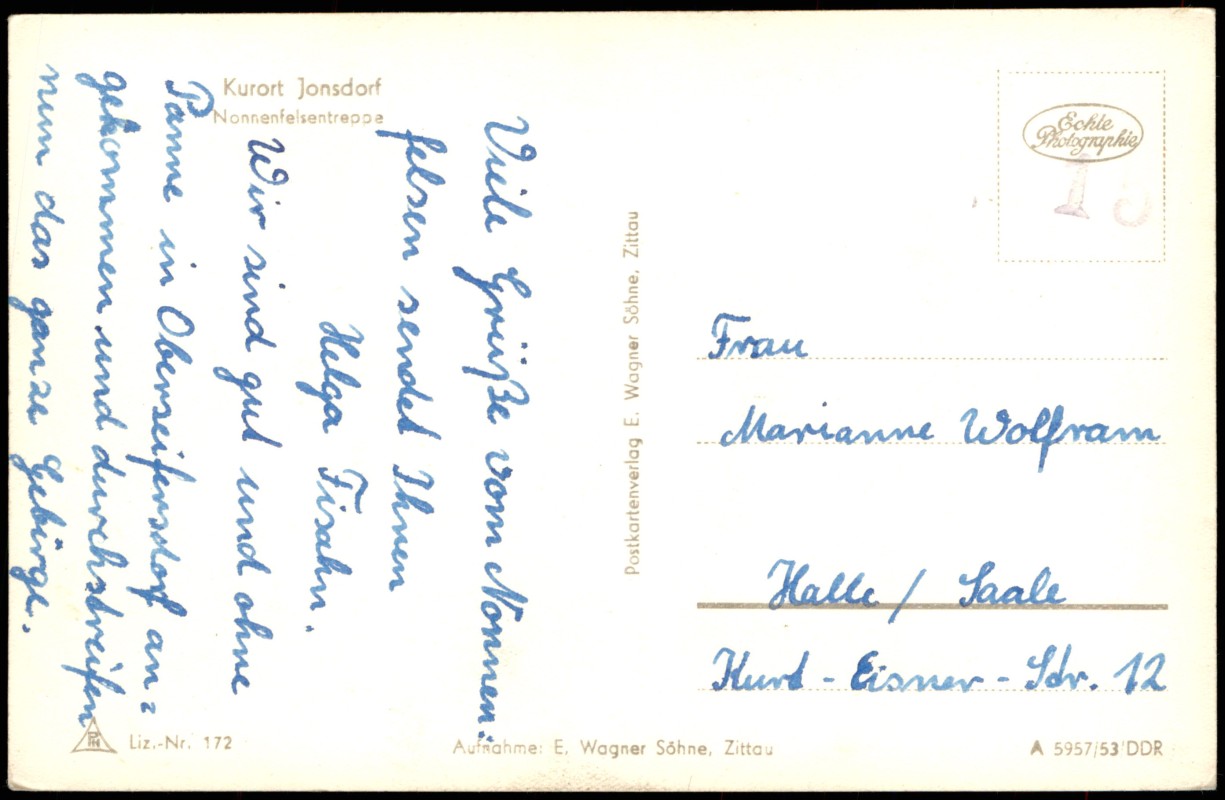 Kurort Jonsdorf
Nonnenfelsentreppe
Viele Grüße vom Nonnen-
felsen sendet Ihnen
Helga Fisahn.
Wir sind gut und ohne
Panne in Oberseifersdorf an-
gekommen und durchstreifen
nun das ganze Gebirge.
Liz.-Nr. 172
Aufnahme: E. Wagner Söhne, Zittau
Postkartenverlag E. Wagner Söhne, Zittau
Echte
Photographie
Frau
Marianne Wolfram
Halle / Saale
Kurt-Eisner-Str. 12
A 5957/53 DDR